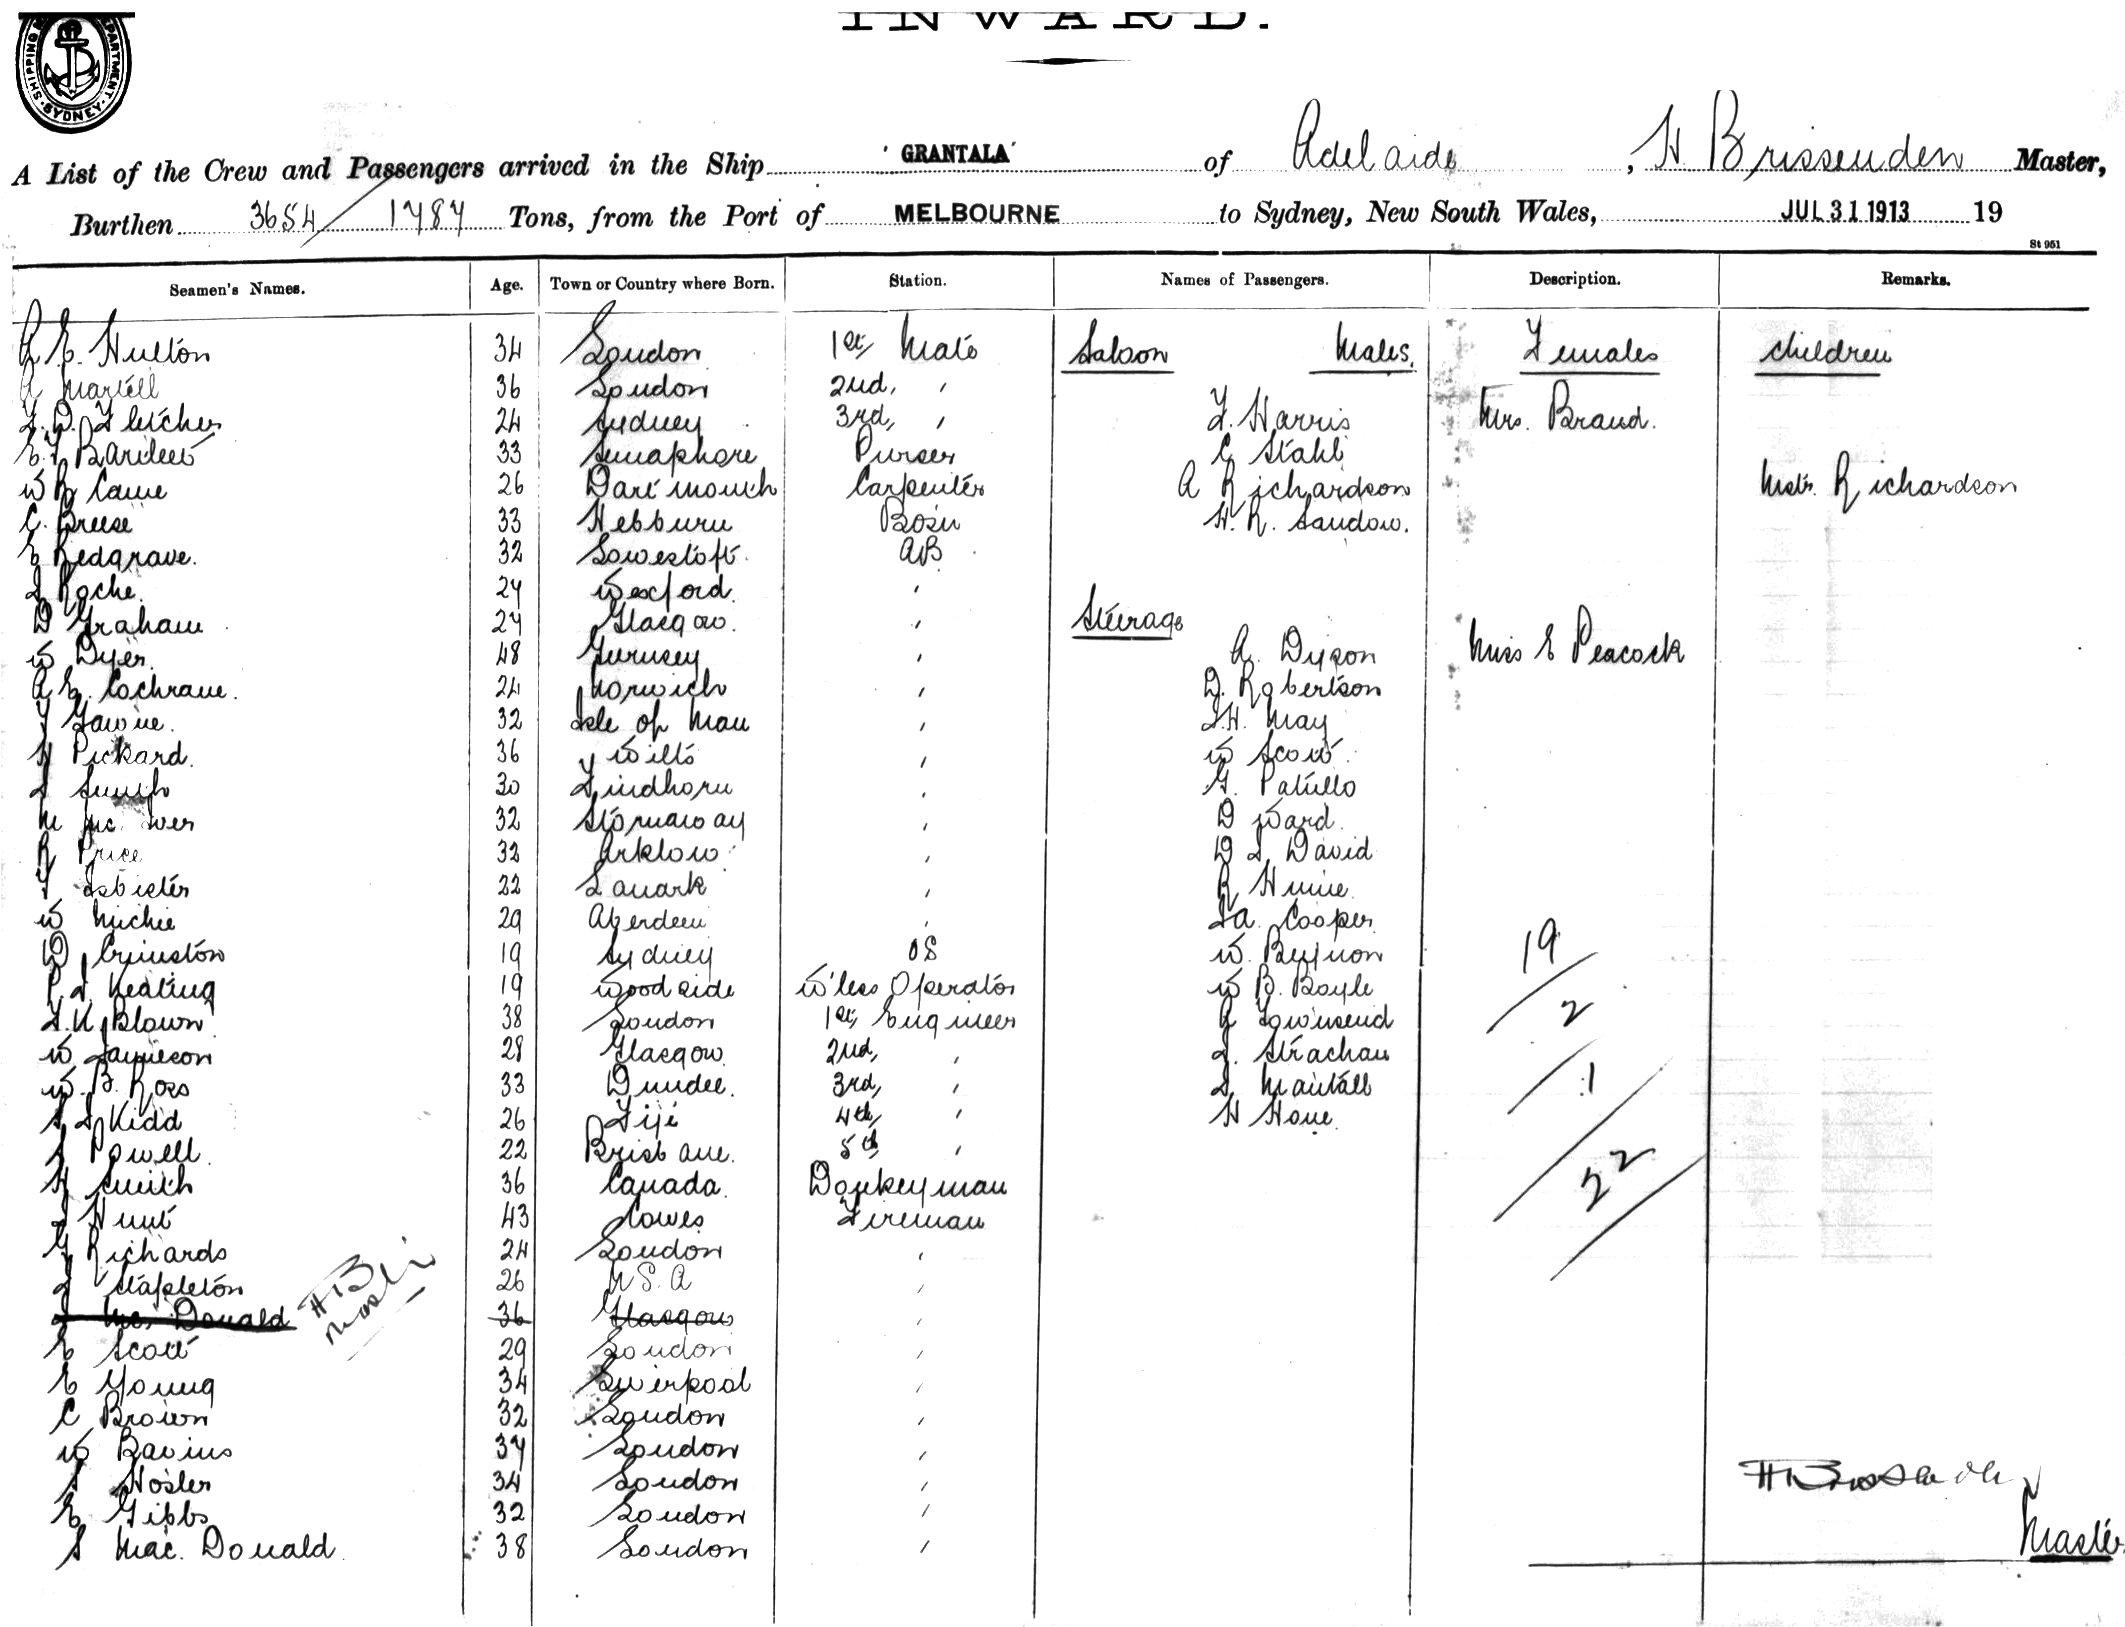 INWARD.
SHIPPING DEPARTMENT SYDNEY
A List of the Crew and Passengers arrived in the Ship 'GRANTALA' of Adelaide, H Brissenden Master,
Burthen 3654/1787 Tons, from the Port of MELBOURNE to Sydney, New South Wales, JUL 31 1913 19
St 951
Seamen's Names. Age. Town or Country where Born. Station. Names of Passengers. Description. Remarks.
A E. Hulton 34 London 1st, Mate Saloon Males. Females children
A Martell 36 London 2nd, "
F. D. Fletcher 24 Sydney 3rd, " F. Harris Mrs. Brand.
E. F Bartlett 33 Semaphore Purser C Stahl
W R Cawe 26 Dartmouth Carpenter A Richardson Mstr. Richardson
C. Breese 33 Hebburn Bosn H. R. Sandow.
E Redgrave. 32 Lowestoft. AB
J Roche. 27 Wexford. "
D Graham 27 Glasgow. " Steerage
W Dyer. 48 Gurnsey " A. Dyson Miss E Peacock
A E. Cochrane. 24 Norwich " D. Robertson
T Gawne. 32 Isle of Man " J.H. May
H Pickard. 36 Wilts " W Scott.
J Smith 30 Findhorn " G. Patullo
M Mc. 32 Stornaway " D Ward.
R Price 32 Arklow " D J. David
T Isbister 22 Lanark " R Hume.
W Michie 29 Aberdeen " J.A. Cooper
D Crimston 19 Sydney OS W. Beynon 19
P J Keating 19 Woodside W'less Operator W B. Boyle 2
F. K. Blown 38 London 1st, Engineer A Townsend
W Jamieson 28 Glasgow 2nd, " J. Strachan
W. B. Ross 33 Dundee. 3rd, " J. Mantall 1
A J Kidd 26 Fiji 4th, " H Hone
A Powell 22 Brisbane. 5th "
H Smith 36 Canada. Donkeyman 22
J Hunt 43 Cowes Fireman
G Richards 24 London "
J Stapleton 26 U S. A "
J Mc. Donald 36 Glasgow " HB Master
E Scott 29 London "
E Young 34 Liverpool "
C Brown 32 London "
W Bavins 37 London "
A Hosler 34 London " H Brissenden
E Gibbs 32 London "
A Mac. Donald 38 London " Master